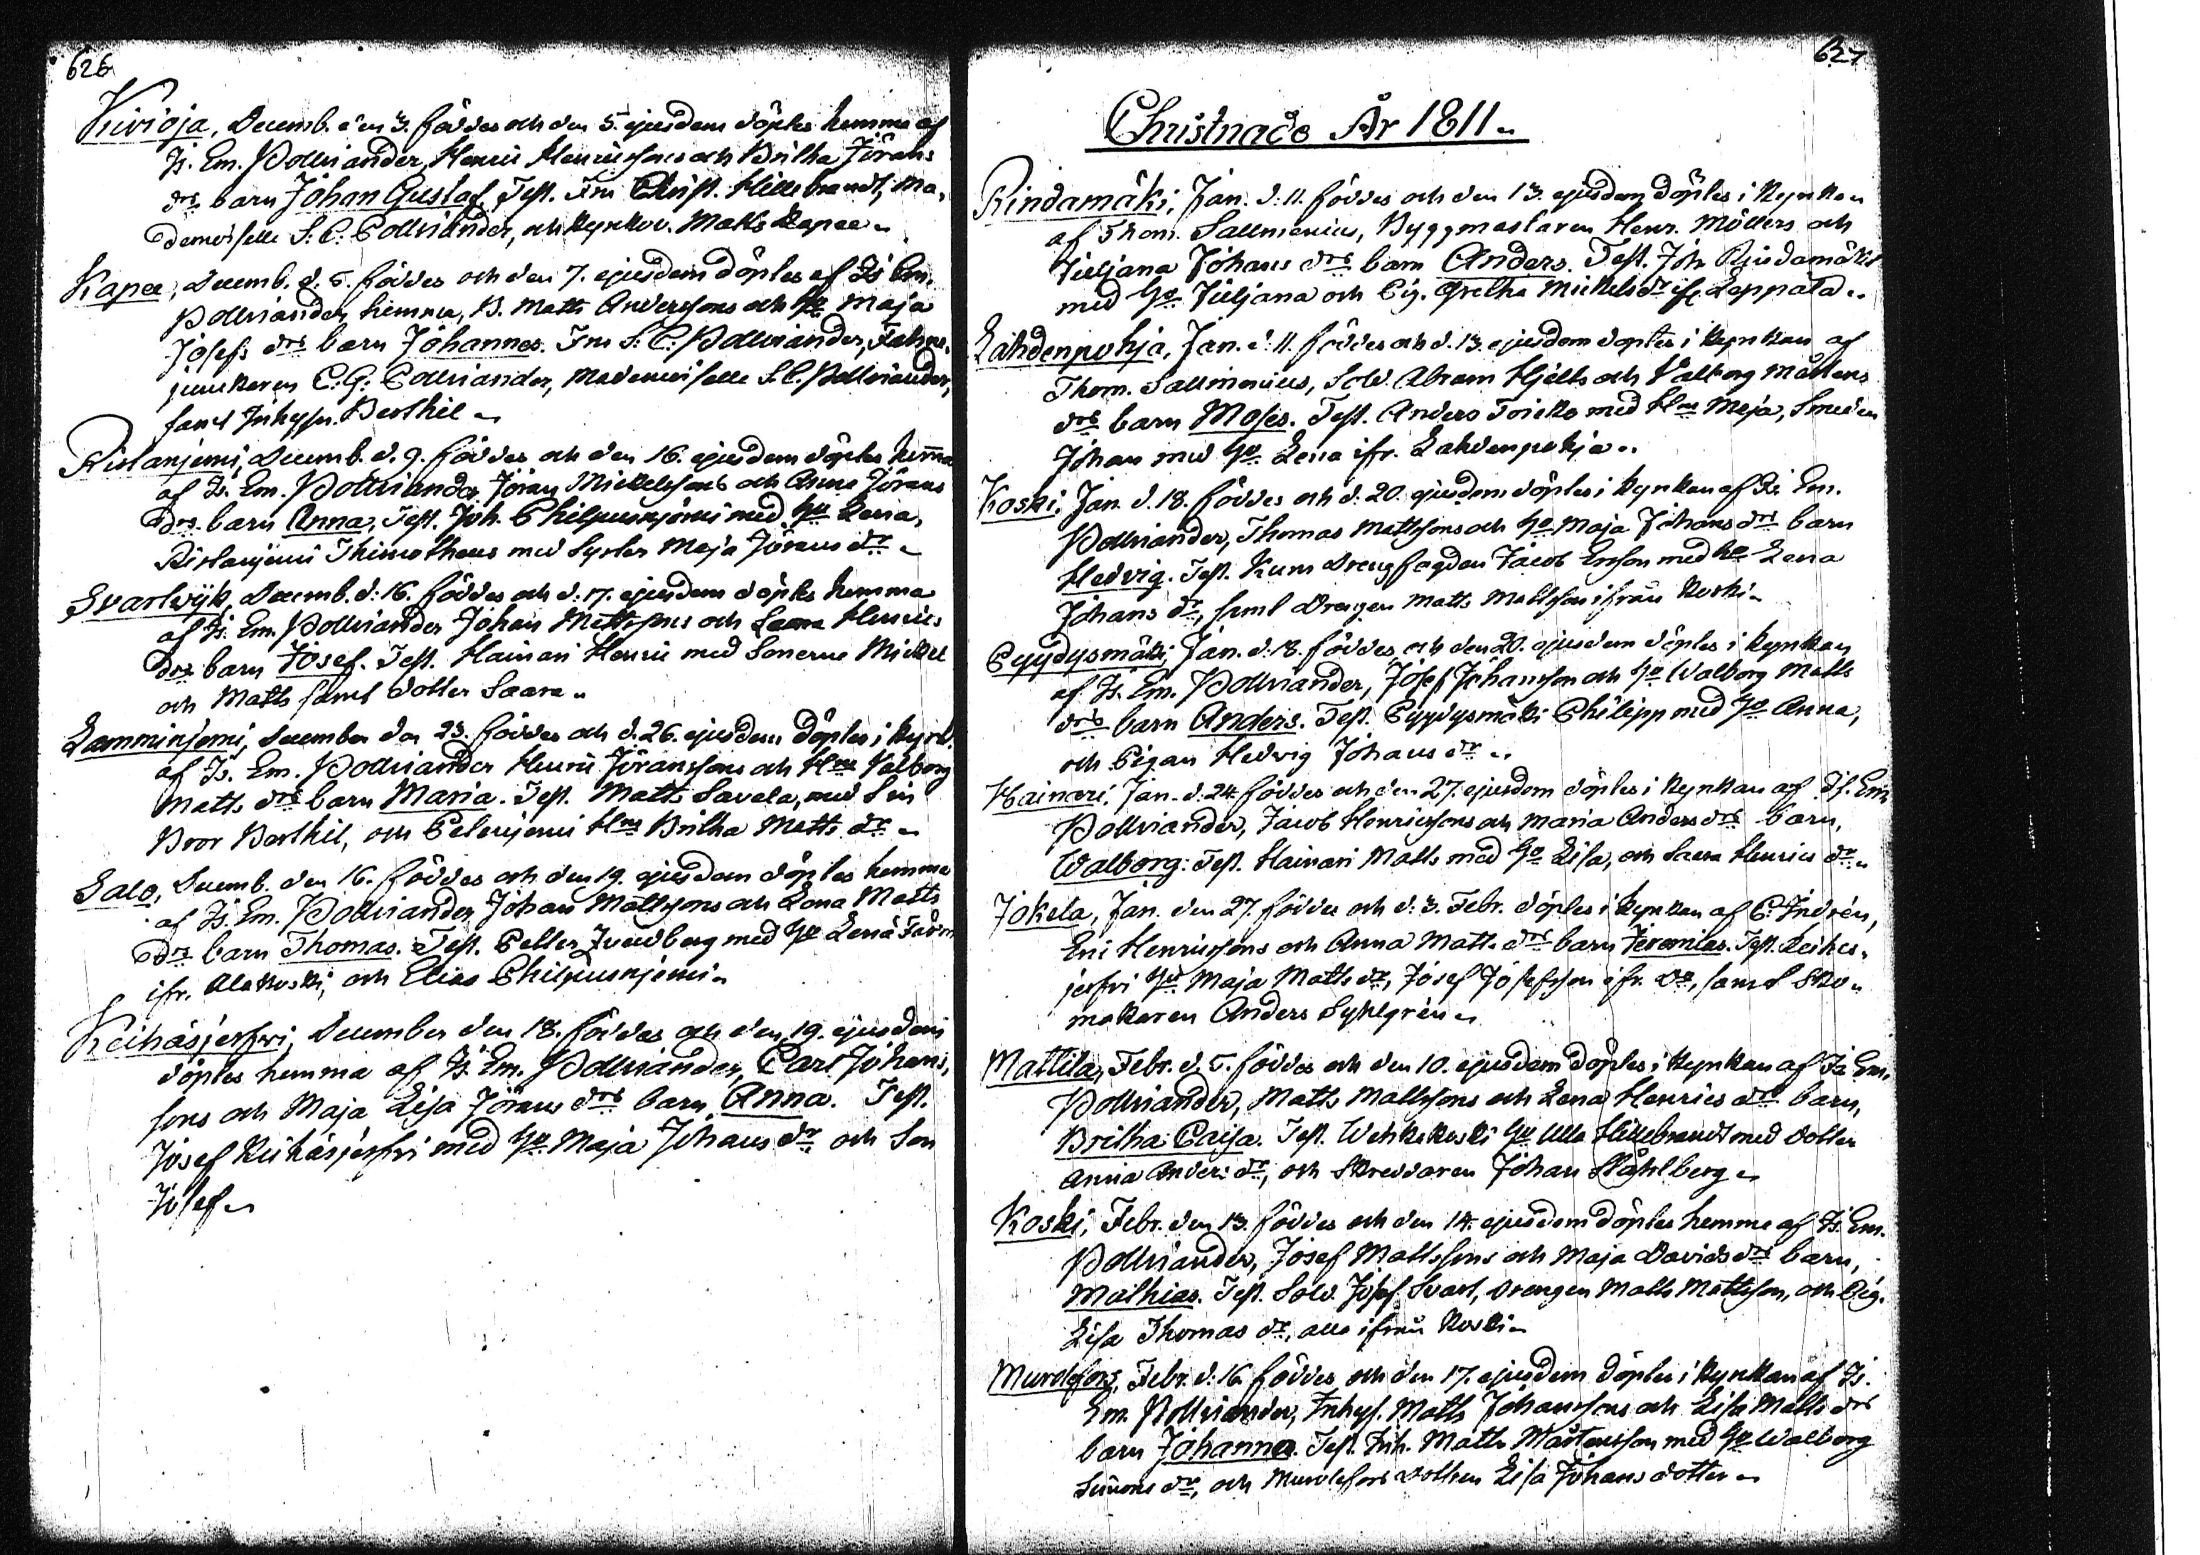 626
Kivioja, Decemb. den 3. föddes och den 5. ejusdem döptes hemma af
Is. Em. Pollviander, Henric Henricssons och Britha Jörans
drs barn Johan Gustaf. Test. Fru Christ. Hillebrandt, Ma-
demoiselle S: C: Pollviander, och Kyrkov. Matts Kapee.
Kapee, Decemb. d. 5. föddes och den 7. ejusdem döptes af Is Em.
Pollviander hemma, B. Matts Anderssons och Ho Maja
Josefs drs barn Johannes. Fru S. C. Pollviander, Fahne-
junkaren C. G. Pollviander, Mademoiselle S. C. Pollviander,
samt Inhysn. Berthil
Ristanjemi, Decemb. d. 9. föddes och den 16. ejusdem döptes hema
af Is. Em. Pollviander Jöran Mickelssons och Anna Jörans
drs barn Anna, Test. Joh. Philpusnjemi med Hu Lena,
Ristanjemi Thimotheus med Syster Maja Jörans dr
Svartwijk, Decemb. d: 16. föddes och d: 17. ejusdem döptes hemma
af Is. Em. Pollviander Johan Mattssons och Saara Henrics
drs barn Josef. Test. Hainari Henric med Sonerne Mickel
och Matts samt dotter Saara
Lamminjemi, December den 23. föddes och d. 26. ejusdem döptes i Kyrk.
af Is. Em. Pollviander Henric Jöranssons och Hu Valborg
Matts drs barn Maria. Test. Matts Savela, med Sin
Bror Berthil, och Hu Britha Matts dr
Salo, Decemb. den 16. föddes och den 19. ejusdem döptes hemma
af Is. Em. Pollviander Johan Mattssons och Lena Matts
drs barn Thomas. Test. Petter med Ho Lena
ifr. Alakoski, och Elias Philpusnjemi
Keihäsjerfvi, December den 18. föddes och den 19. ejusdem
döptes hemma af Is. Em. Pollviander, Carl Johans-
sons och Maja Lisa Jörans drs barn Anna. Test.
Josef Keihäsjerfvi med Ho Maja Johans dr och Son
Josef
627
Christnade År 1811
Rindamäki, Jan. d: 11. föddes och den 13. ejusdem döptes i Kyrkan
af Thom. Sallmenius, Byggmästaren Henr. Möllers och
Juljana Johans drs barn Anders. Test. Joh. Rindamäki
med Ho Juljana och Pig. Gretha Mickels dr ifr. Leppälä
Lahdenpohja, Jan. d: 11. föddes och d. 13. ejusdem döptes i Kyrkan af
Thom. Sallmenius, Sold. Abram Hjelts och Valborg Mårtens
drs barn Moses. Test. Anders Toicko med Hu Maja, Smeden
Johan med Ho Lena ifr. Lahdenpohja
Koski, Jan. d. 18. föddes och d. 20. ejusdem döptes i Kyrkan af Is. Em.
Pollviander, Thomas Mattssons och Ho Maja Johans drs barn
Hedvig. Test. Kum Drengfogden Jacob Ersson med Ho Lena
Johans dr, samt Drengen Matts Mattsson ifrån Koski
Pyydysmäki, Jan. d. 18. föddes och den 20. ejusdem döptes i Kyrkan
af Is. Em. Pollviander, Josef Johansson och Ho Walborg Matts
drs barn Anders. Test. Pyydysmäki Philipp med Ho Anna,
och Pigan Hedvig Johans dr
Hainari, Jan. d. 24. föddes och den 27. ejusdem döptes i Kyrkan af Is. Em
Pollviander, Jacob Henricssons och Maria Anders drs barn,
Walborg. Test. Hainari Matts med Ho Lisa, och Saara Henrics dr
Jokela, Jan. den 27. föddes och d. 3. Febr. döptes i Kyrkan af P. Indrén,
Eric Henricssons och Anna Matts drs barn Jeremias. Test. Keihes-
jerfvi Hu Maja Matts dr, Josef Josefsson ifr. do, samt Sko-
makaren Anders Syhlgrén
Mattila, Febr. d. 5. föddes och den 10. ejusdem döptes i Kyrkan af Is Em.
Pollviander, Matts Mattssons och Lena Henrics drs barn,
Britha Caisa. Test. Wehkakoski Hu Ulla Hillebrandt med dotter
Anna Anders dr, och Skreddaren Johan Ståhlberg
Koski, Febr. den 13. föddes och den 14. ejusdem döptes hemma af Is. Em.
Pollviander, Josef Mattssons och Maja Davids drs barn,
Mathias. Test. Sold. Josef Svart, Drengen Matts Mattsson, och Pig.
Lisa Thomas dr, alla ifrån Koski
Murdefors, Febr. d: 16. föddes och den 17. ejusdem döptes i Kyrkan af Is.
Em. Pollviander, Inhys. Matts Johanssons och Lisa Matts drs
barn Johanna. Test. Inh. Matts Mårtensson med Ho Walborg
Simons dr, och Murdefors dottren Lisa Johans dotter